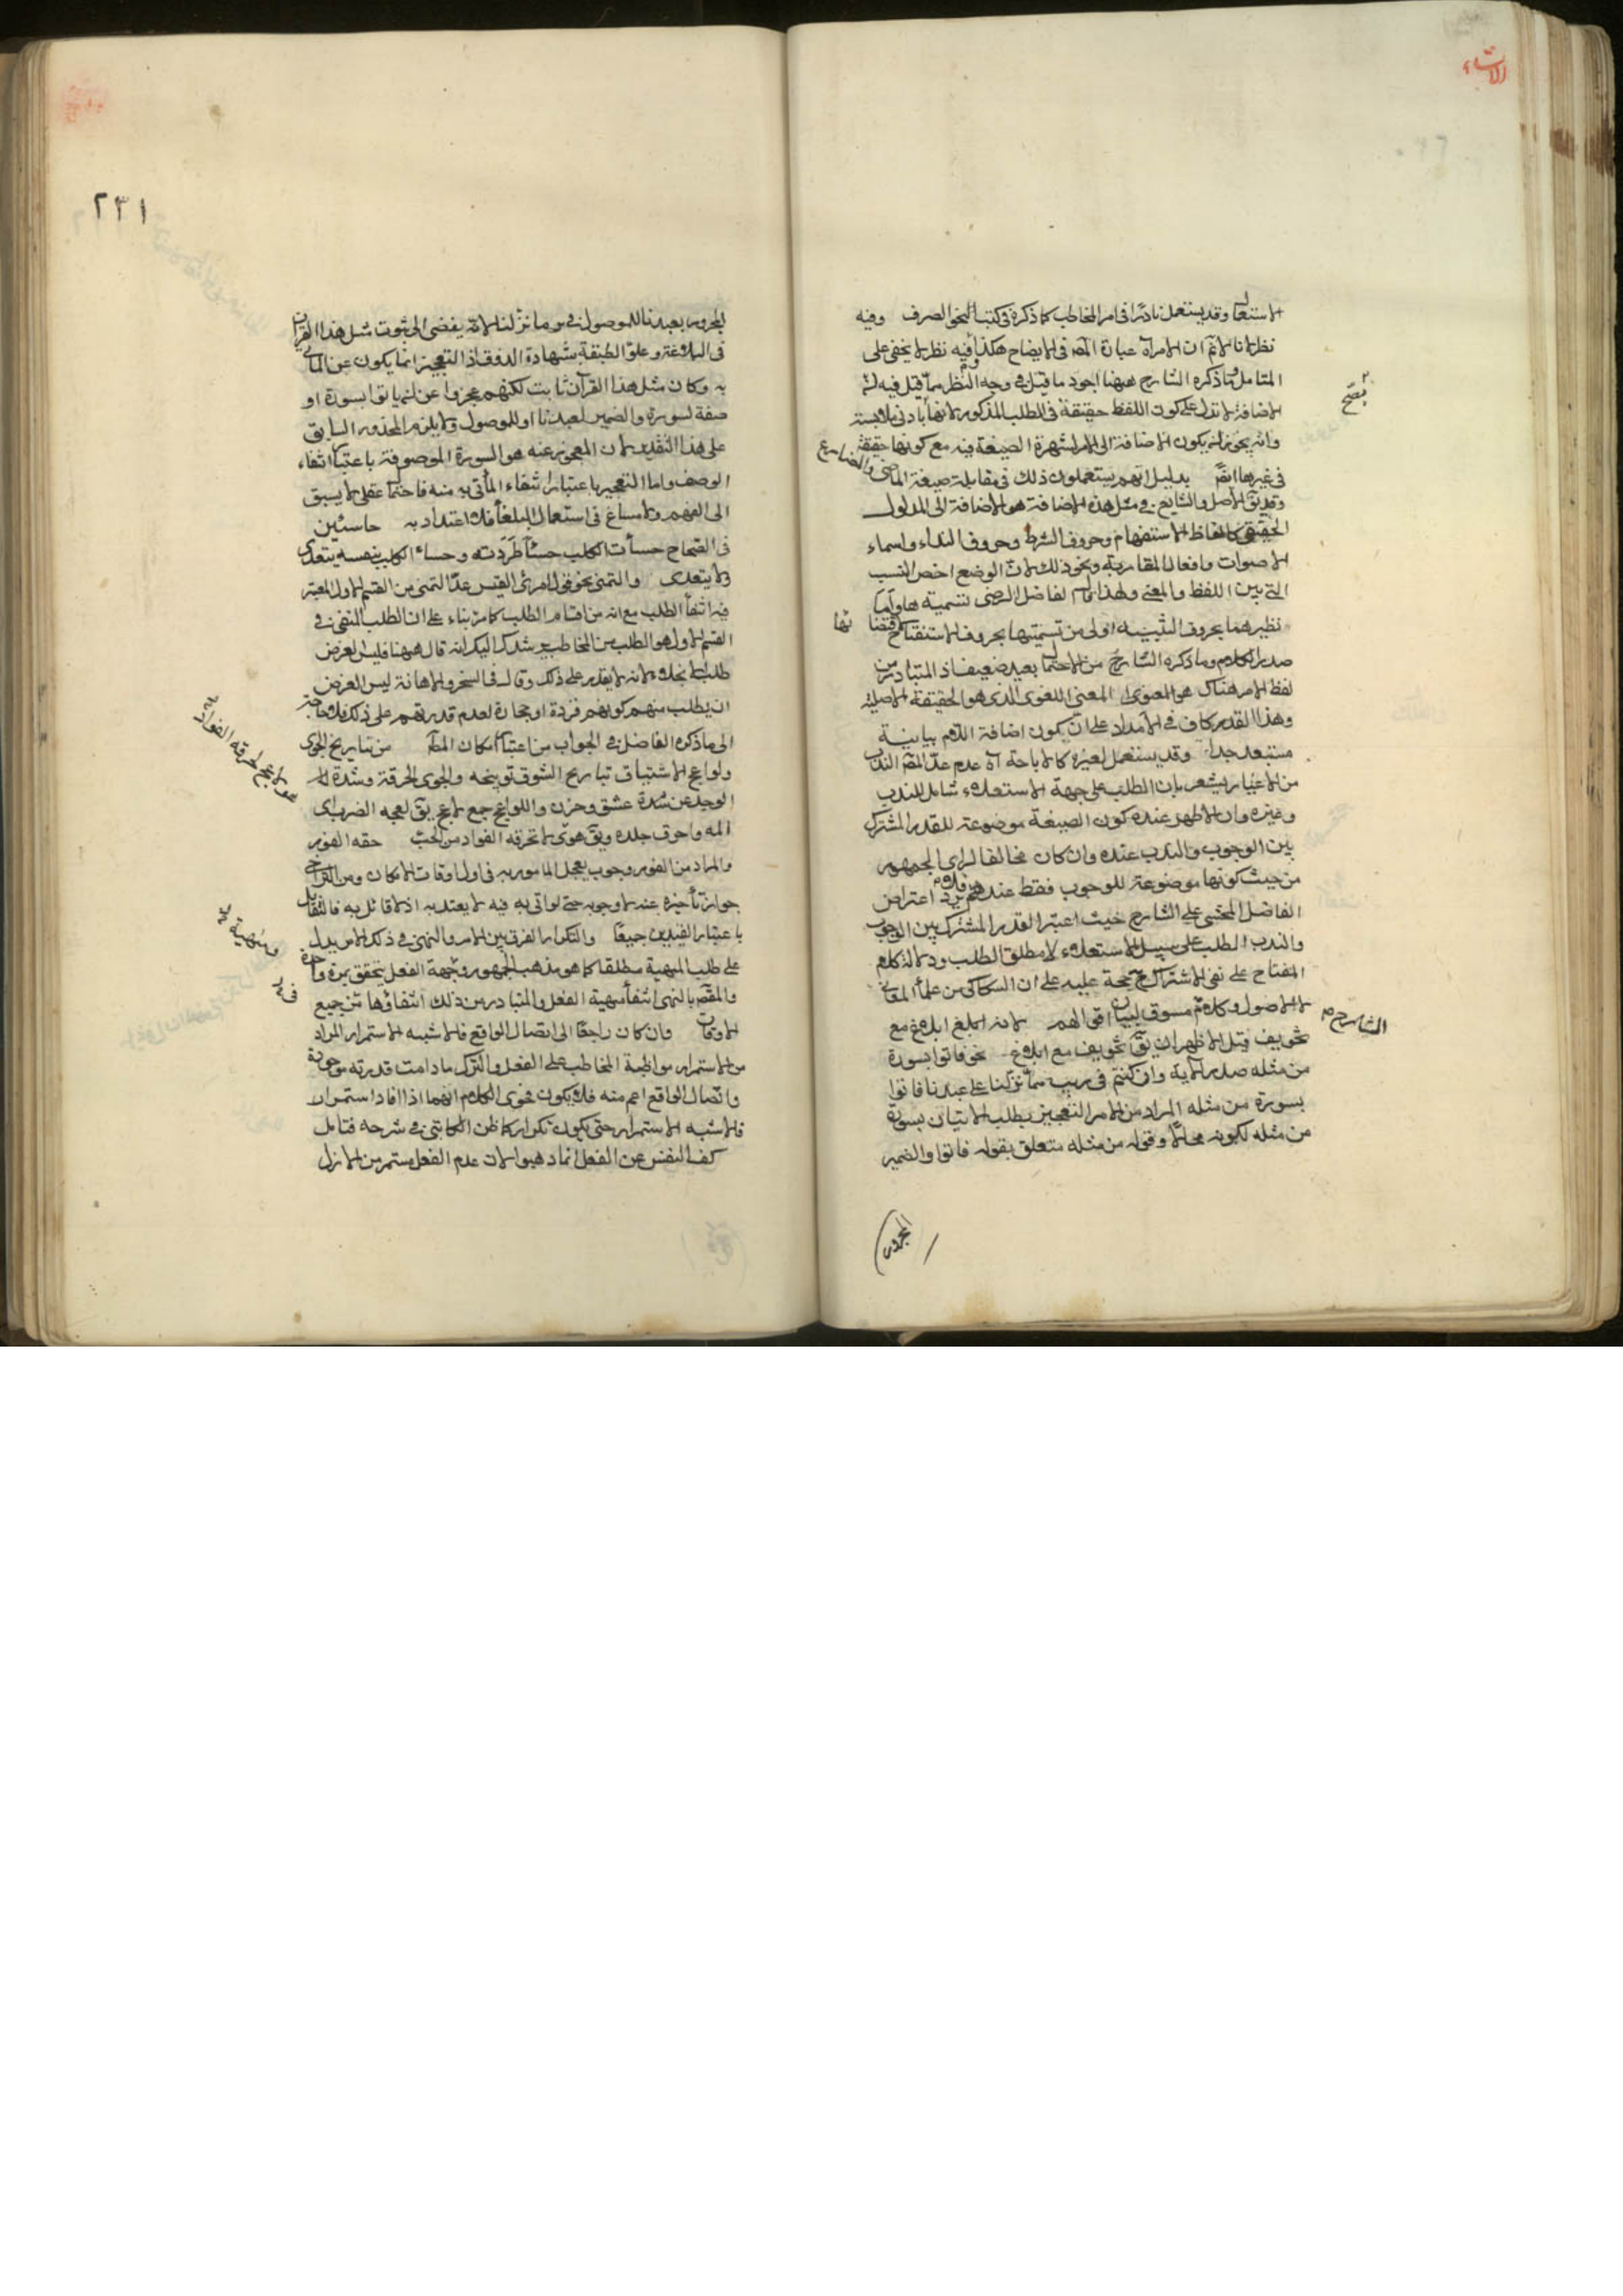 الانشاء
الاستعلا وقد يستعمل نادرا فى امر المخاطب كما ذكره فى كتب النحو والصرف وفيه
نظر لانا لانم ان الامر آه عبارة المص فى الايضاح هكذا وفيه نظر لا يخفى على
المتامل وما ذكره الشارح ههنا اجود ما قيل فى وجه النظر مما قيل فيه لان
الاضافة لا تدل على كون اللفظ حقيقة فى الطلب المذكور لانها بادنى ملابسة
وانه يجوز ان يكون الاضافة الى الامر لشهرة الصيغة فيه مع كونها حقيقة
فى غيرها ايضا بدليل انهم يستعملون ذلك فى مقابلة صيغة الماضى والمضارع
وقد يق الاصل والشايع فى مثل هذه الاضافة هو الاضافة الى المدلول
الحقيقى كالفاظ الاستفهام وحروف الشرط وحروف النداء واسماء
الاصوات وافعال المقاربة ونحو ذلك لان الوضع اخص النسب
التى بين اللفظ والمعنى ولهذا الفاضل الرضى تسمية ها واما
نظيرهما بحروف التنبيه اولى من تسميتها بحروف الاستفتاح لاقتضائها
صدر الكلام وما ذكره الشارح من الاحتمال بعيد ضعيف اذ المتبادر من
لفظ الامر هناك هو المعنى اللغوى الذى هو الحقيقة الاصلية
وهذا القدر كاف فى الامداد على ان يكون اضافة اللام بيانية
مستبعد جدا وقد يستعمل لغيره كالاباحة آه عدم عد المص الندب
من الاغيار يشعر بان الطلب على جهة الاستعلاء شامل للندب
وغيره وان الاظهر عنده كون الصيغة موضوعة للقدر المشترك
بين الوجوب والندب عنده وان كان مخالفا لراى الجمهور
من حيث كونها موضوعة للوجوب فقط عندهم فلا يرد اعتراض
الفاضل المحشى على الشارح حيث اعتبر القدر المشترك بين الوجوب
والندب الطلب على سبيل الاستعلاء لا مطلق الطلب ودلالة كلام
المفتاح على نفى الاشتراك حجة عليه على ان السكاكى من علماء المعانى
لا الاصول وكلامه مسوق لبيان اقوالهم لانه ابلاغ مع
الشارح
تخويف قيل الاظهر ان يق تخويف مع ابلاغ نحو فاتوا بسورة
من مثله صدر الآية وان كنتم فى ريب مما نزلنا على عبدنا فاتوا
بسورة من مثله المراد من الامر التعجيز بطلب الاتيان بسورة
من مثله لكونه محالا وقوله من مثله متعلق بقوله فاتوا والضمير
المجرور
٢٣١
المجرور بعبدنا للموصول فى مما نزلنا لانه يفضى الى ثبوت مثل هذا القرآن
فى البلاغة وعلو الطبقة بشهادة الذوق اذ التعجيز انما يكون عن المأتى
به وكان مثل هذا القرآن ثابت لكنهم عجزوا عن ان ياتوا بسورة او
صفة لسورة والضمير لعبدنا او للموصول ولا يلزم المحذور السابق
على هذا التقدير لان المعجوز عنه هو السورة الموصوفة باعتبار انتفاء
الوصف واما التعجيز باعتبار انتفاء المأتى به منه فاحتمال عقلى لا يسبق
الى الفهم ولا مساغ فى استعمال البلغاء فلا اعتداد به خاسئين
فى الصحاح خسأت الكلب خسئا طردته وخساء الكلب بنفسه يتعدى
ولا يتعدى والتمنى نحو قول امرئ القيس عد التمنى من القسم الاول المعتبر
فيه انتفاء الطلب مع انه من اقسام الطلب كما مر بناء على ان الطلب المنفى فى
القسم الاول هو الطلب من المخاطب يرشدك اليك انه قال ههنا فليس الغرض
طلب الانجلاء لانه لا يقدر على ذلك وقال فى التسخير والاهانة ليس الغرض
ان يطلب منهم كونهم قردة او حجارة لعدم قدرتهم على ذلك فلا حاجة
الى ما ذكره الفاضل فى الجواب من اعتبار امكان المط من تباريح الجوى
ولواعج الاشتياق تباريح الشوق توهجه والجوى الحرقة وشدة
الوجد من شدة عشق وحزن واللواعج جمع لاعج يق لعجه الضرب اى
المه واحرق جلده ويق هوى لا تحرقه الفواد من الحب حقه الفور
والمراد من الفور وجوب تعجيل المامور به فى اول اوقات الامكان ومن التراخى
جواز تأخيره عنه لا وجوبه حتى لو اتى به فيه لا يعتد به اذ لا قائل به فالتقابل
باعتبار القيدين جميعا والتكرار الفرق بين الامر والنهى فى ذلك الامر يدل
على طلب المهية مطلقا كما هو مذهب الجمهور ومهية الفعل يتحقق بمرة واحدة
والمقص بالنهى انتفاء مهية الفعل والمتبادر من ذلك انتفاؤها فى جميع
الاوقات وان كان راجعا الى اتصال الواقع فالاشبه الاستمرار المراد
من الاستمرار مواظبة المخاطب على الفعل والترك ما دامت قدرته موجودة
واتصال الواقع اعم منه فلا يكون فحوى الكلام انهما اذا افادا استمرار
فالاشبه الاستمرار حتى يكون تكرارا كما ظن الكاتبى فى شرحه فتامل
كف النفس عن الفعل انما ذهبوا لان عدم الفعل مستمر من الازل